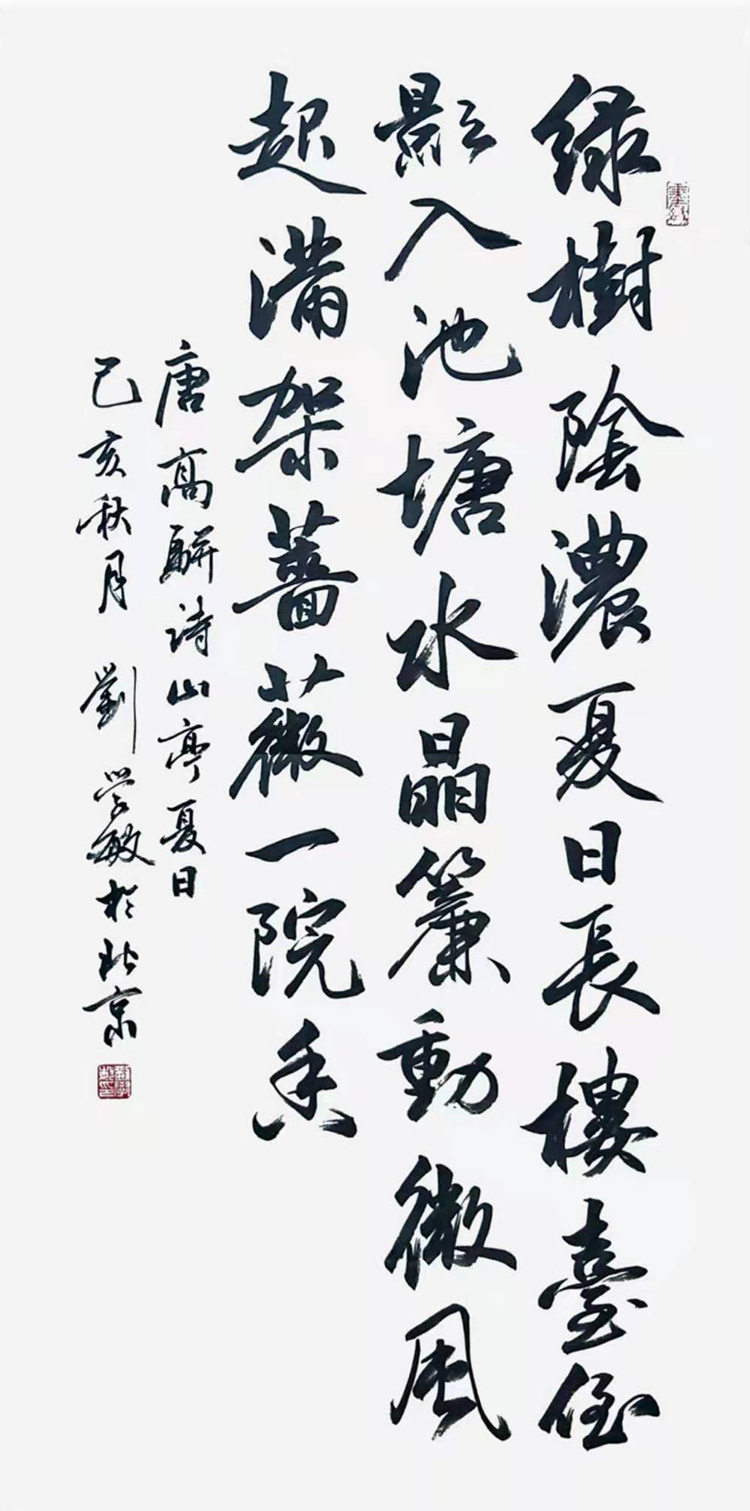 绿樹陰濃夏日長樓臺倒
影入池塘水晶簾動微風
起滿架薔薇一院香
唐高駢诗山亭夏日
己亥秋月 劉学敏於北京